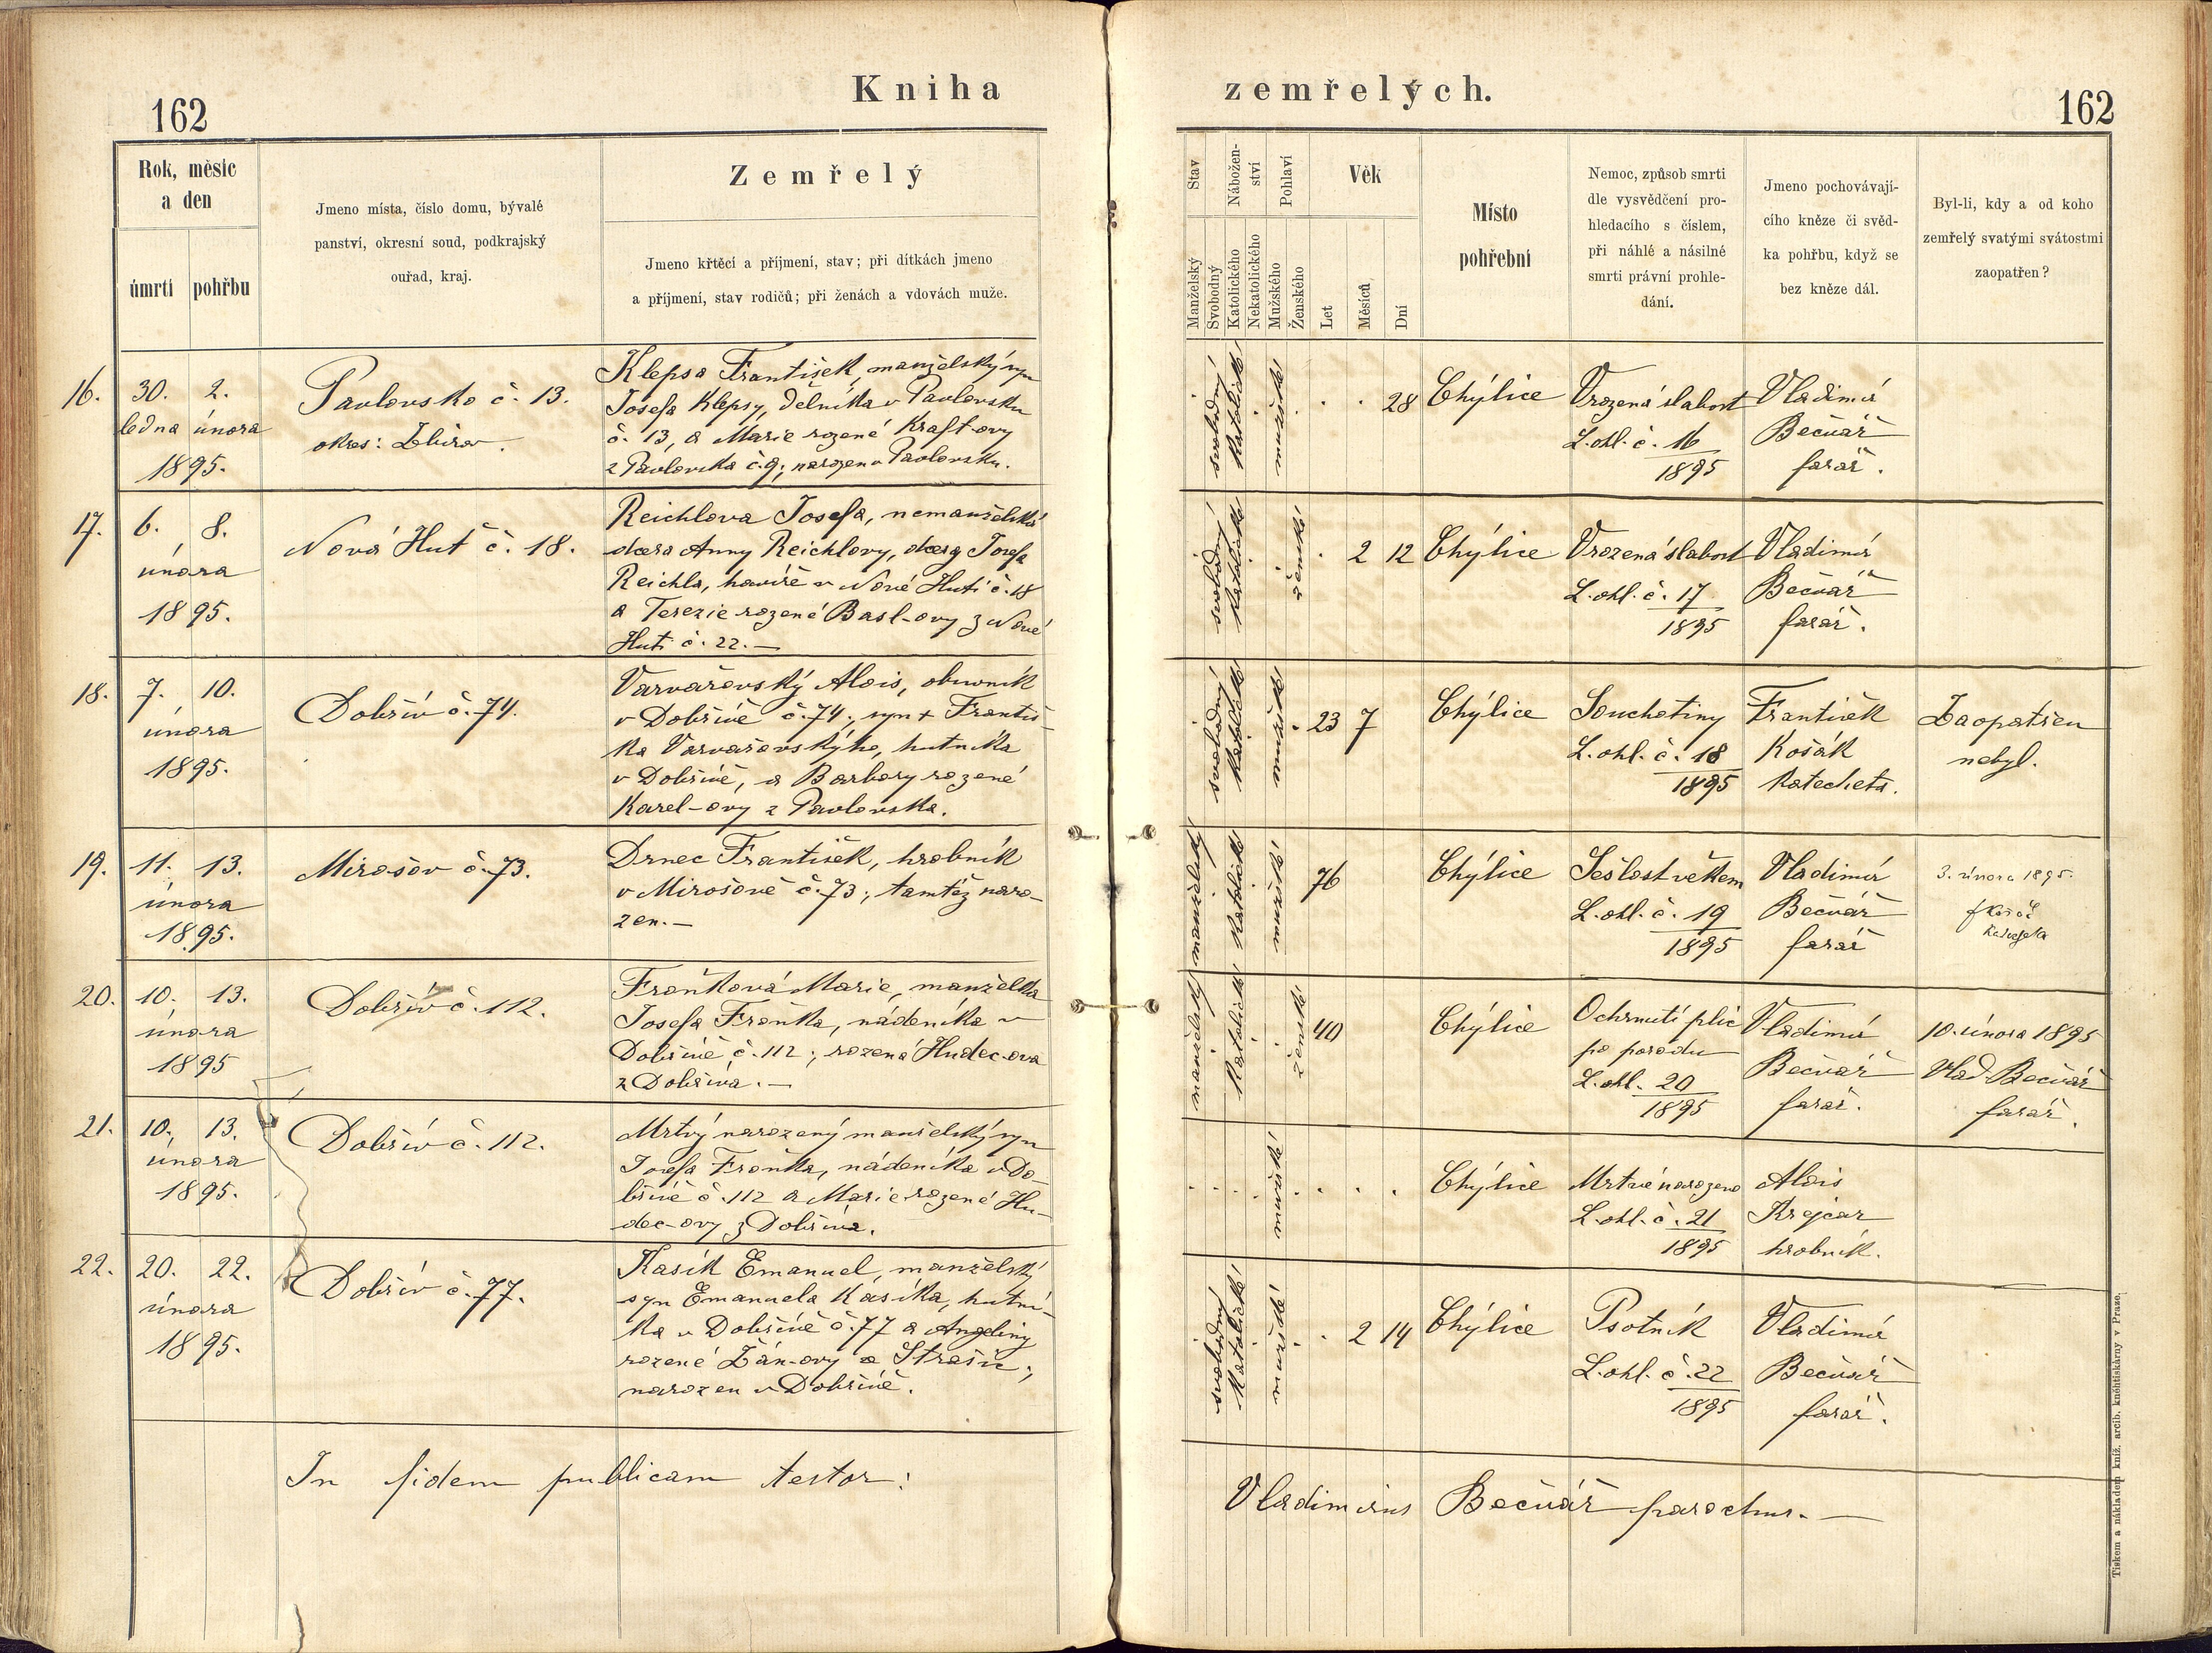 162
Kniha
zemřelých.
162
Rok, měsíc
a den
úmrtí
pohřbu
Jmeno místa, číslo domu, bývalé
panství, okresní soud, podkrajský
ouřad, kraj.
Zemřelý
Jmeno křtěcí a příjmení, stav; při dítkách jmeno
a příjmení, stav rodičů; při ženách a vdovách muže.
Stav
Nábožen-
ství
Pohlaví
Věk
Manželský
Svobodný
Katolického
Nekatolického
Mužského
Ženského
Let
Měsíců
Dní
Místo
pohřební
Nemoc, způsob smrti
dle vysvědčení pro-
hledacího s číslem,
při náhlé a násilné
smrti právní prohle-
dání.
Jmeno pochovávají-
cího kněze či svěd-
ka pohřbu, když se
bez kněze dál.
Byl-li, kdy a od koho
zemřelý svatými svátostmi
zaopatřen?
16.
30. 2.
ledna února
1895.
Pavlovsko č. 13.
okres: Zbirov.
Klepsa František, manželský syn
Josefa Klepsy, dělníka v Pavlovsku
č. 13, a Marie rozené Kraft-ovy
z Pavlovska č. 9; narozen v Pavlovsku.
svobodný
katolické
mužské
28
Chýlice
Vrozená slabost
L. ohl. č. 16
1895
Vladimír
Bečvář
farář.
17.
6. 8.
února
1895.
Nová Huť č. 18.
Reichlova Josefa, nemanželská
dcera Anny Reichlovy, dcery Josefa
Reichla, havíře v Nové Huti č. 18
a Terezie rozené Basl-ovy z Nové
Huti č. 22. —
svobodný
katolické
ženské
2 12
Chýlice
Vrozená slabost
L. ohl. č. 17
1895
Vladimír
Bečvář
farář.
18.
7. 10.
února
1895.
Dobřív č. 74.
Varvařovský Alois, obuvník
v Dobřívě č. 74; syn + Františ-
ka Varvařovského, hutníka
v Dobřívě, a Barbory rozené
Karel-ovy z Pavlovska.
svobodný
katolické
mužské
23 7
Chýlice
Souchotiny
L. ohl. č. 18
1895
František
Košák
katecheta.
Zaopatřen
nebyl.
19.
11. 13.
února
1895.
Mirošov č. 73.
Drnec František, hrobník
v Mirošově č. 73; tamtéž naro-
zen. —
manželský
katolické
mužské
76
Chýlice
Sešlost věkem
L. ohl. č. 19
1895
Vladimír
Bečvář
farář
3. února 1895.
20.
10. 13.
února
1895
Dobřív č. 112.
Froňková Marie, manželka
Josefa Froňka, nádeníka v
Dobřívě č. 112; rozená Hudec-ova
z Dobříva. —
manželský
katolické
ženské
40
Chýlice
Ochrnutí plic
po porodu
L. ohl. 20
1895
Vladimír
Bečvář
farář.
10. února 1895
Vlad. Bečvář
farář.
21.
10. 13.
února
1895.
Dobřív č. 112.
Mrtvý narozený manželský syn
Josefa Froňka, nádeníka v Do-
břívě č. 112 a Marie rozené Hu-
dec-ovy z Dobříva.
mužské
Chýlice
Mrtvě narozeno
L. ohl. č. 21
1895
Alois
Krejcar
hrobník.
22.
20. 22.
února
1895.
Dobřív č. 77.
Kasík Emanuel, manželský
syn Emanuela Kasíka, hutní-
ka v Dobřívě č. 77 a Angeliny
rozené Žán-ovy z Strašic;
narozen v Dobřívě.
svobodný
katolické
mužské
2 14
Chýlice
Psotník
L. ohl. č. 22
1895
Vladimír
Bečvář
farář.
In fidem publicam testor:
Vladimirus Bečvář parochus. —
Tiskem a nákladem kníž. arcib. knihtiskárny v Praze.